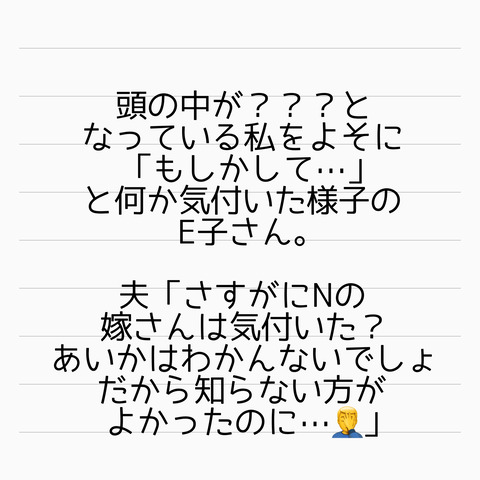 頭の中が？？？と
なっている私をよそに
「もしかして…」
と何か気付いた様子の
E子さん。
夫「さすがにNの
嫁さんは気付いた？
あいかはわかんないでしょ
だから知らない方が
よかったのに…🤦」